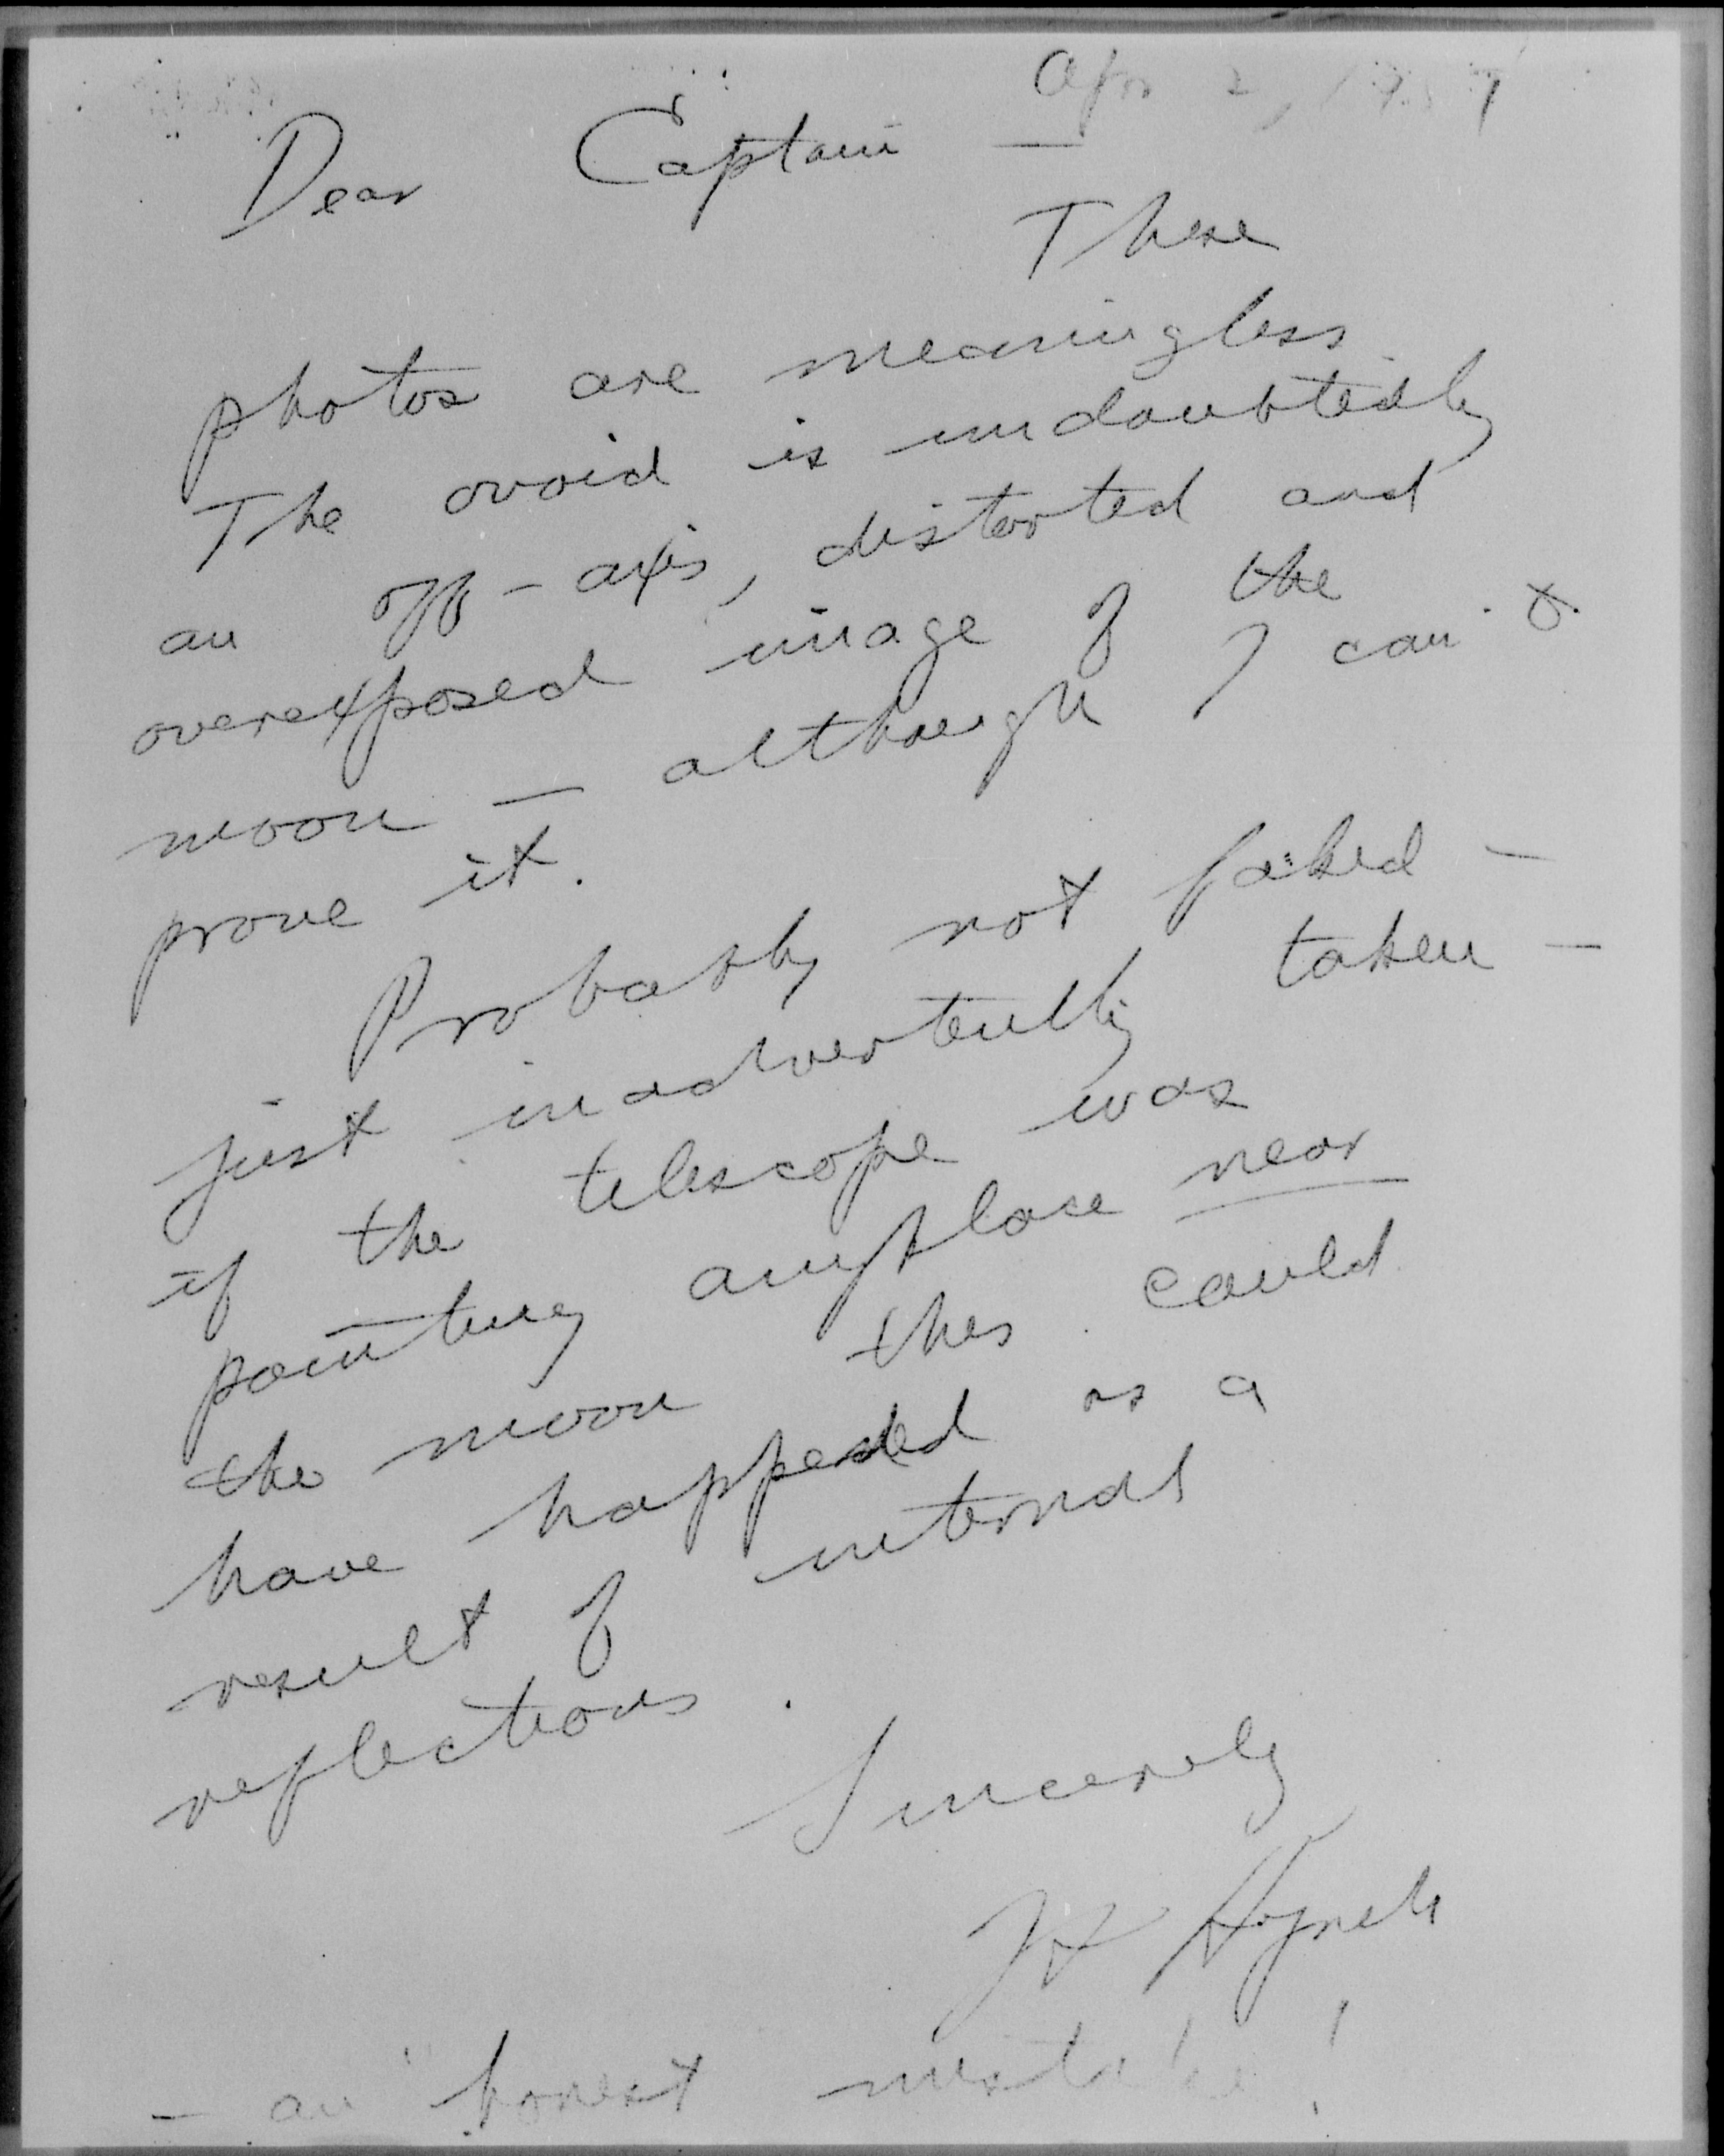 Apr 2, 1957
Dear Captain —
These
photos are meaningless.
The ovoid is undoubtedly
an off-axis, distorted and
overexposed image of the
moon — although I can't
prove it.
Probably not faked —
just inadvertently taken —
if the telescope was
pointing anyplace near
the moon this could
have happened as a
result of internal
reflections.
Sincerely
JA Hynek
— an "honest mistake!